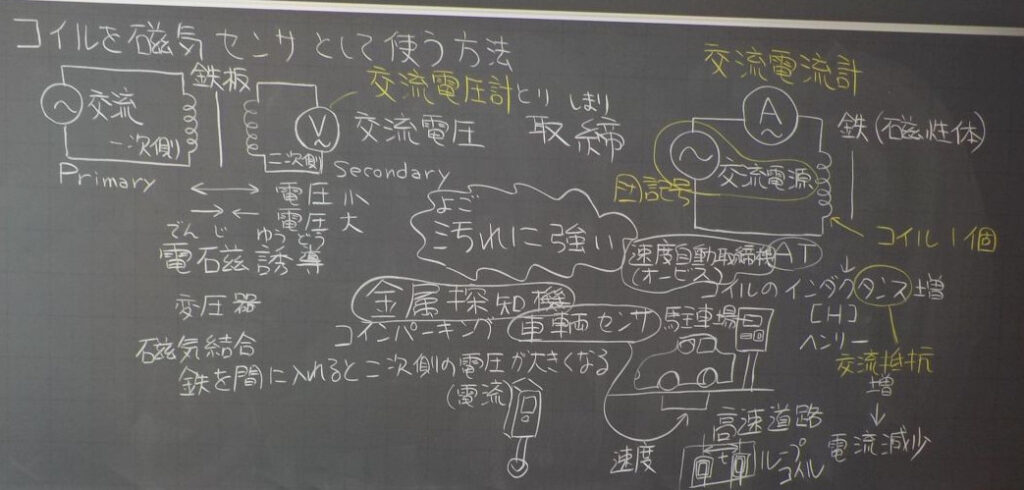 コイルを磁気センサとして使う方法
鉄板
交流
一次側
Primary
交流電圧計
V
交流電圧
二次側
Secondary
とり しまり
取締
電圧小
電圧大
でんじゆうどう
電磁誘導
変圧器
磁気結合
鉄を間に入れると二次側の電圧が大きくなる
(電流)
よご
汚れに強い
金属探知機
コインパーキング 車輌センサ 駐車場
速度自動取締機
(オービス)
AT
交流電流計
A
鉄(磁性体)
交流電源
記号
コイル1個
コイルのインダクタンス増
[H]
ヘンリー
交流抵抗
増
電流減少
高速道路
速度
ループ
コイル